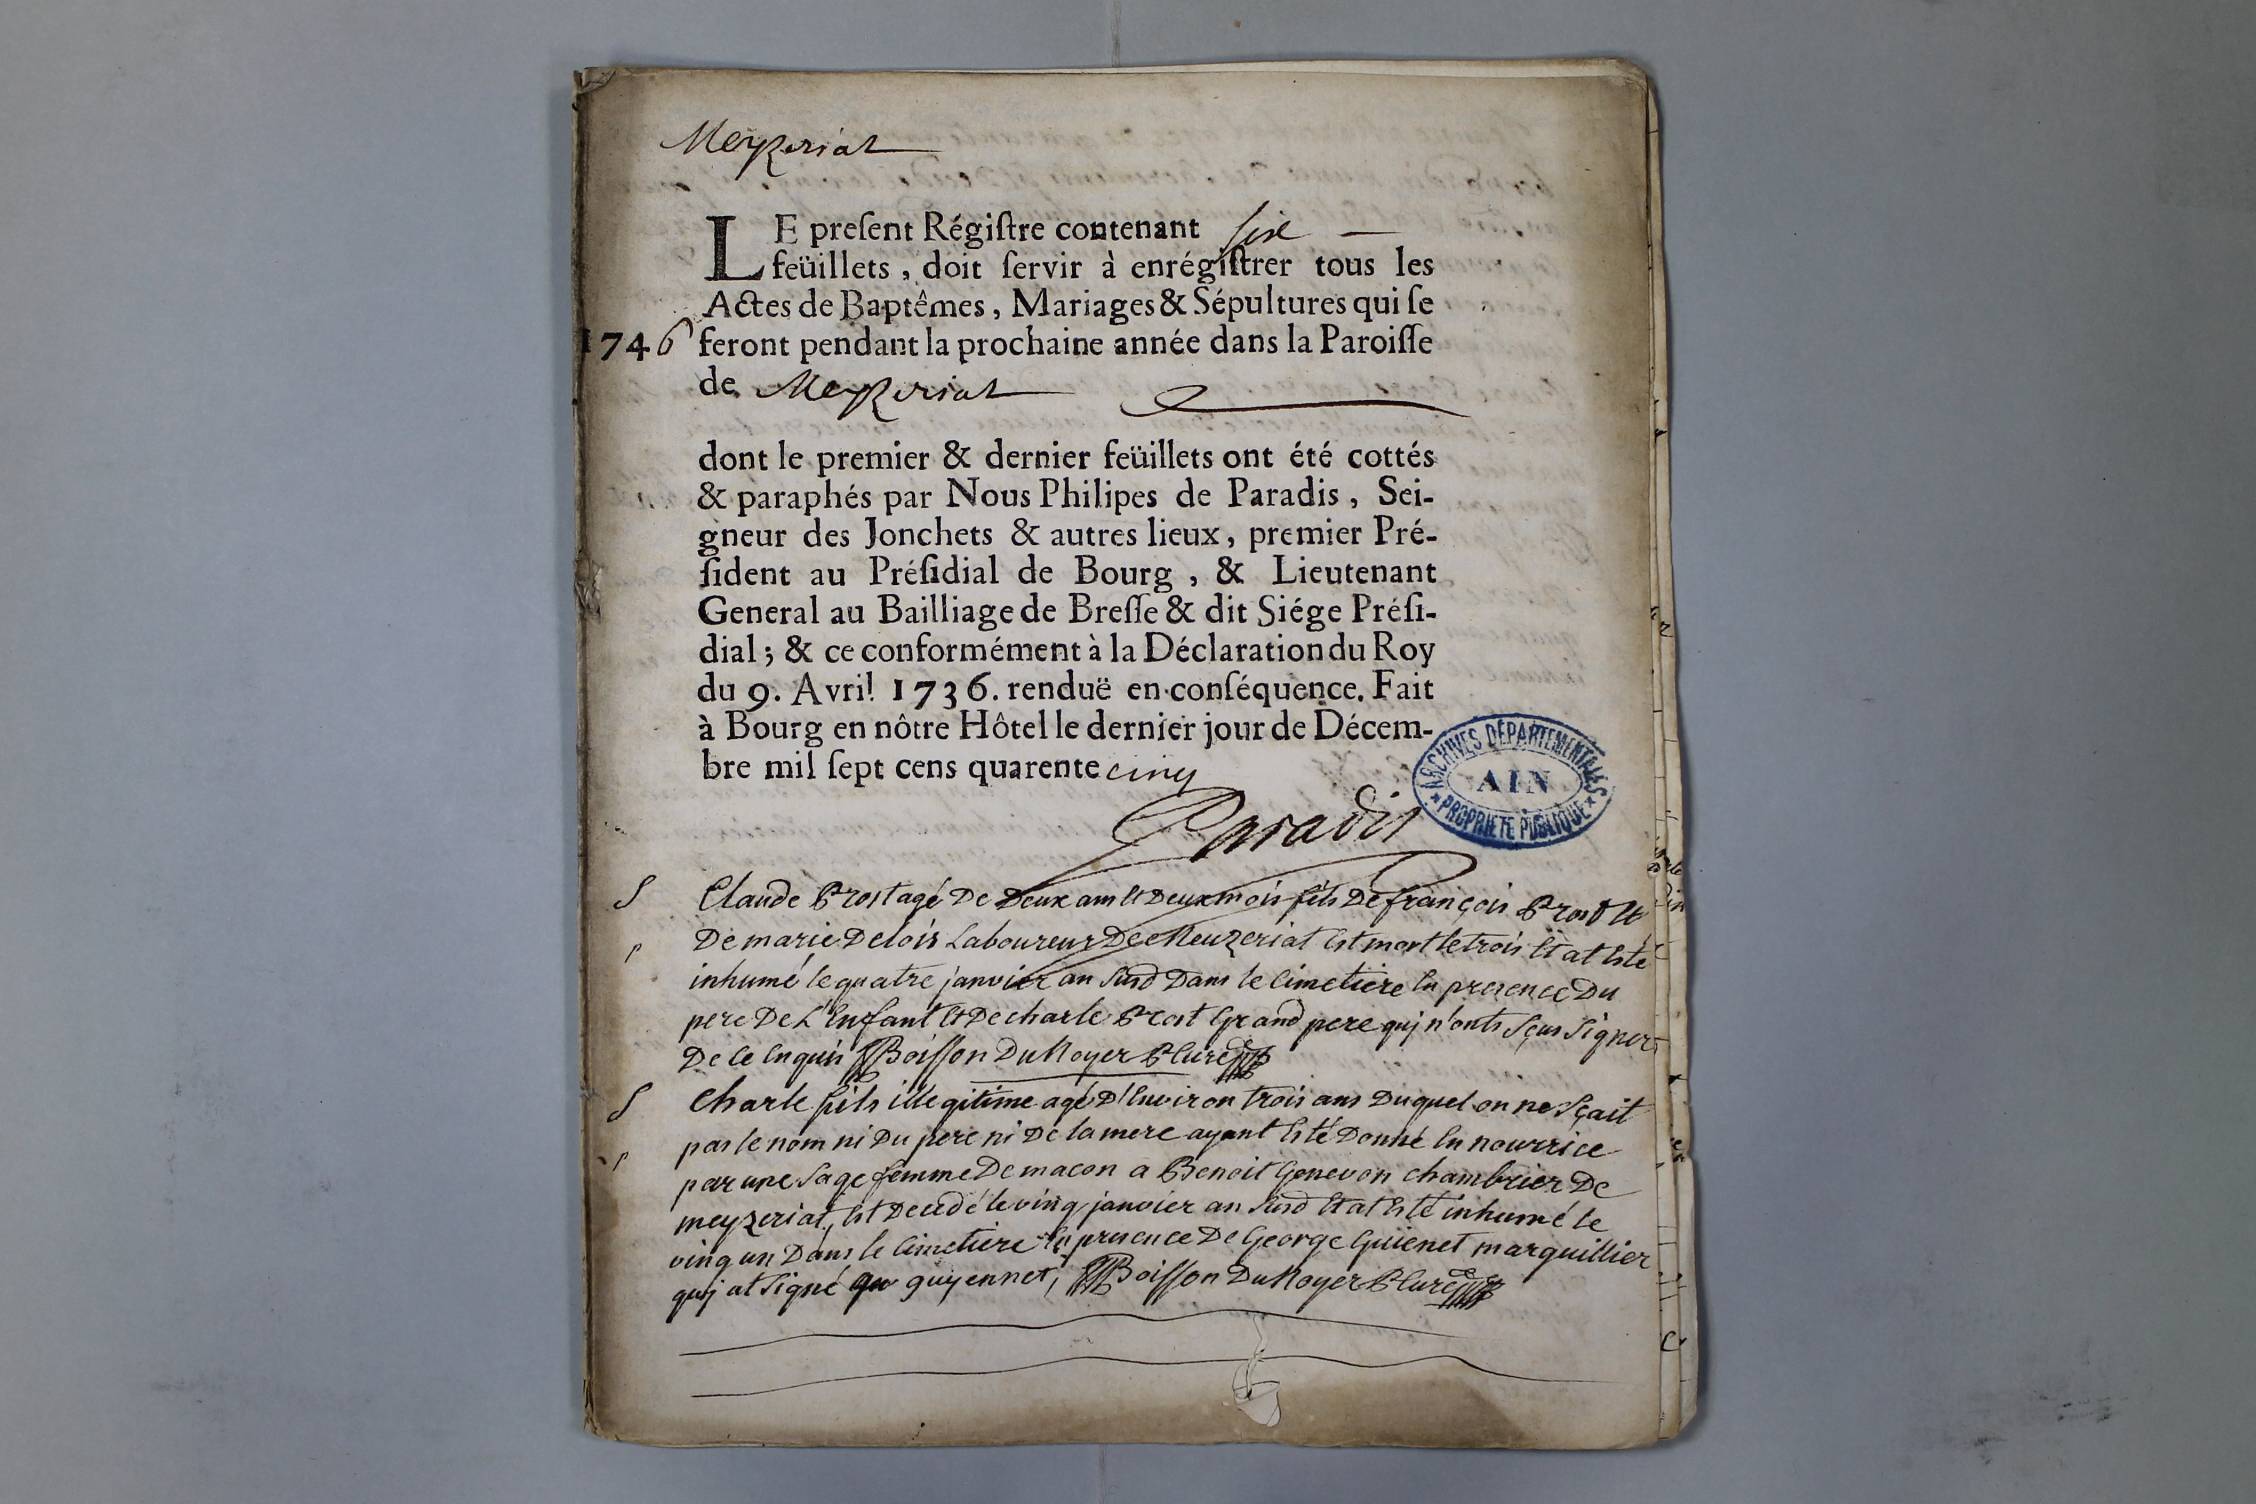 Meyzeriat
LE preſent Régiſtre contenant six
feüillets, doit ſervir à enrégiſtrer tous les
Actes de Baptêmes, Mariages & Sépultures qui ſe
1746 feront pendant la prochaine année dans la Paroiſſe
de Meyzeriat
dont le premier & dernier feüillets ont été cottés
& paraphés par Nous Philipes de Paradis, Sei-
gneur des Jonchets & autres lieux, premier Pré-
ſident au Préſidial de Bourg, & Lieutenant
General au Bailliage de Breſſe & dit Siége Préſi-
dial; & ce conformément à la Déclaration du Roy
du 9. Avril 1736. renduë en conſéquence. Fait
à Bourg en nôtre Hôtel le dernier jour de Décem-
bre mil ſept cens quarente cinq
ARCHIVES DÉPARTEMENTALES
AIN
PROPRIÉTÉ PUBLIQUE
Paradis
S Claude Prost agé De Deux ans et Deux mois fils De françois Prost et
De marie Delois Laboureur De Meuzeriat est mort le trois et at esté
inhumé le quatre janvier an susd Dans le Cimetiere en presence Du
pere De L'enfant et De charle Prost Grand pere quj n'onts sçus signer
De ce enquis Boisson Du Noyer P Curé
S Charle fils illegitime agé D'environ trois ans Duquel on ne sçait
pas le nom ni Du pere ni De la mere ayant esté Donné en nourrice
par une sage femme De macon a Benoit Genevon chambrier De
meyzeriat, est Decedé le ving janvier an susd et at esté inhumé le
ving un Dans le Cimetiere en presence De George Guienet marguillier
quj at signé guyennet, Boisson Du Noyer P Curé